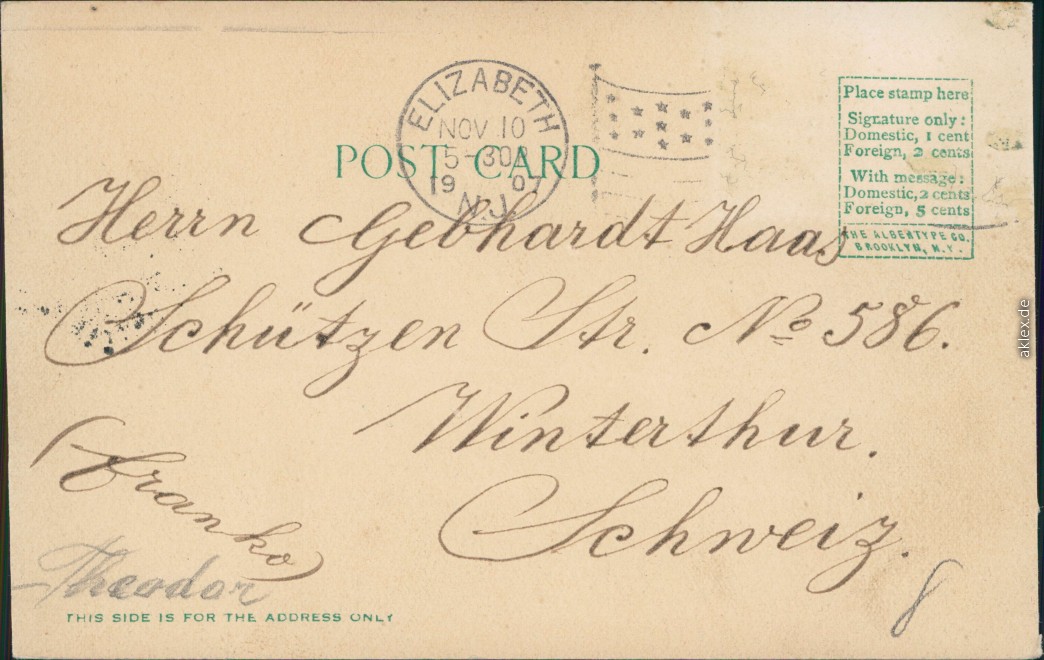 ELIZABETH
NOV 10
5-30P
19 07
N.J.
POST CARD
Place stamp here
Signature only:
Domestic, 1 cent
Foreign, 2 cents
With message:
Domestic, 2 cents
Foreign, 5 cents
THE ALBERTYPE CO.
BROOKLYN, N.Y.
Herrn Gebhardt Haas
Schützen Str. No 586.
Winterthur.
Schweiz.
(Franko)
Theodor
8
THIS SIDE IS FOR THE ADDRESS ONLY
aklex.de